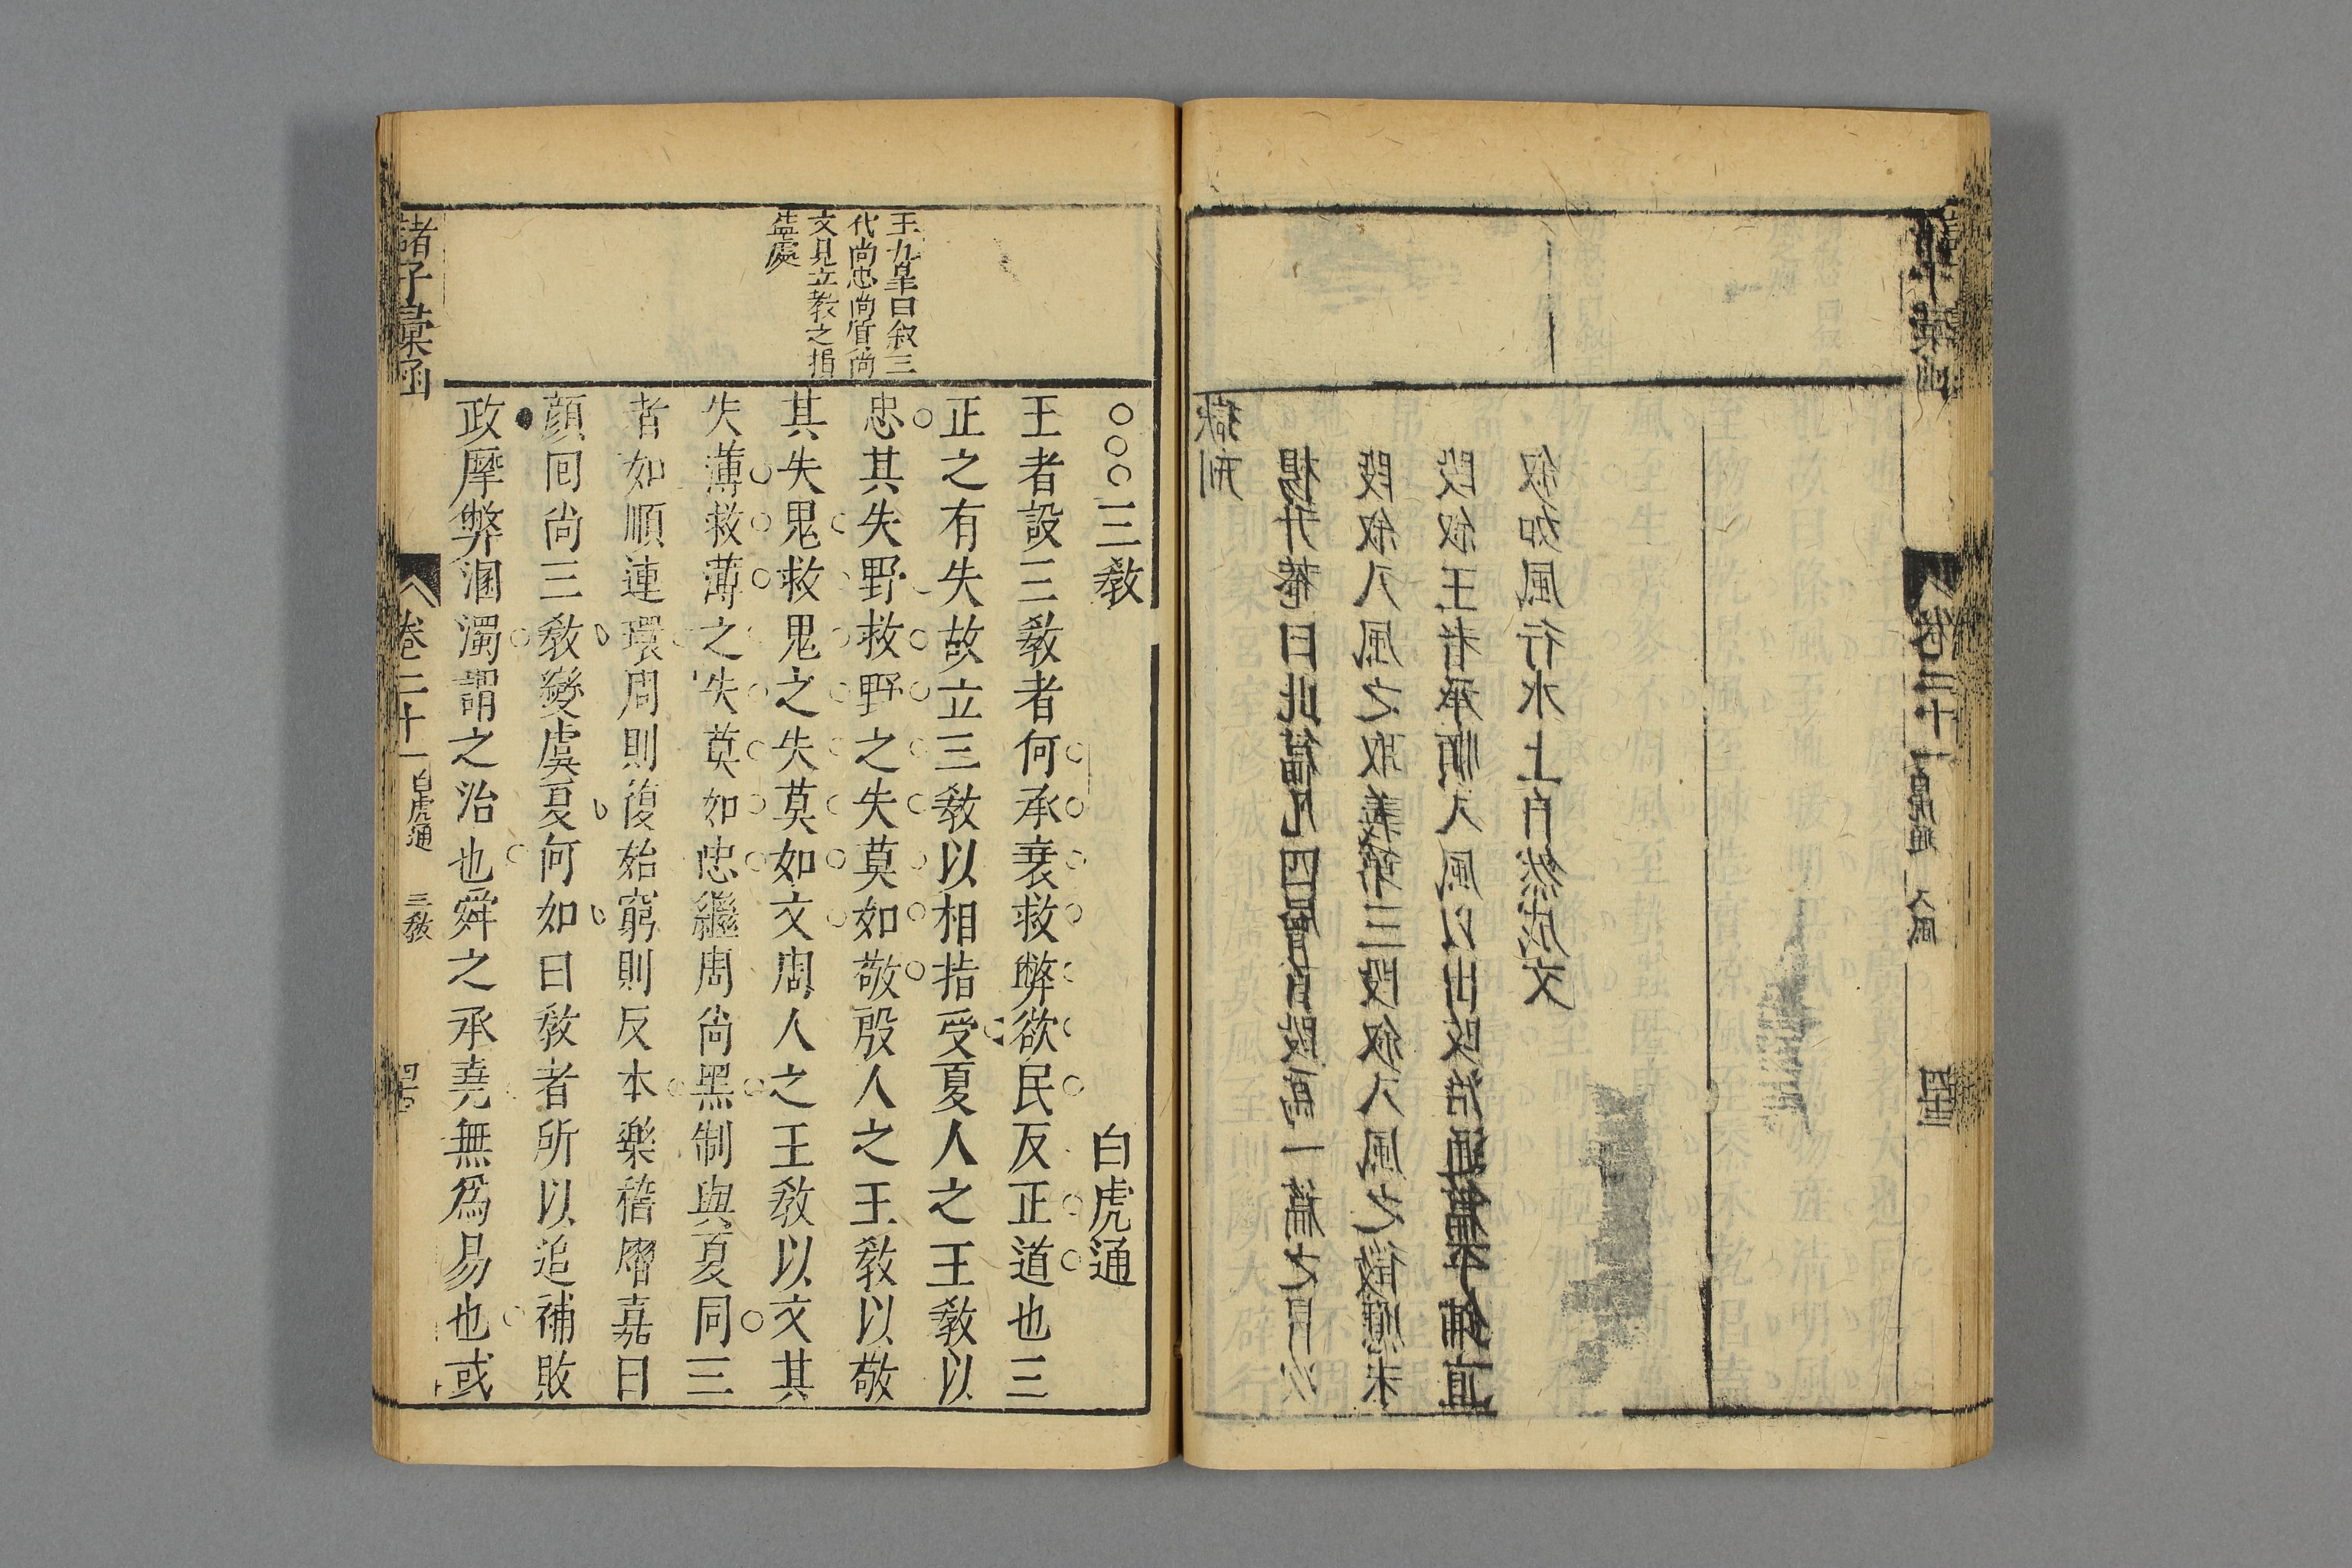 獄刑
楊升菴曰此篇凡四層首段爲一篇之目次
段叙八風之取義第三段叙八風之徵應末
段叙王者承順八風以出政治通篇鋪直
叙如風行水上自然成文
卷二十一 白虎通 八風
王九皐曰叙三
代尚忠尚質尚
文見立教之指
盡處
○○○三教 白虎通
王者設三教者何承衰救弊欲民反正道也三
正之有失故立三教以相指受夏人之王教以
忠其失野救野之失莫如敬殷人之王教以敬
其失鬼救鬼之失莫如文周人之王教以文其
失薄救薄之失莫如忠繼周尚黑制與夏同三
者如順連環周則復始窮則反本樂稽嘉曰
顔囘尚三教變虞夏何如曰教者所以追補敗
政摩弊溷濁謂之治也舜之承堯無爲易也或
諸子彙函 卷二十一 白虎通 三教